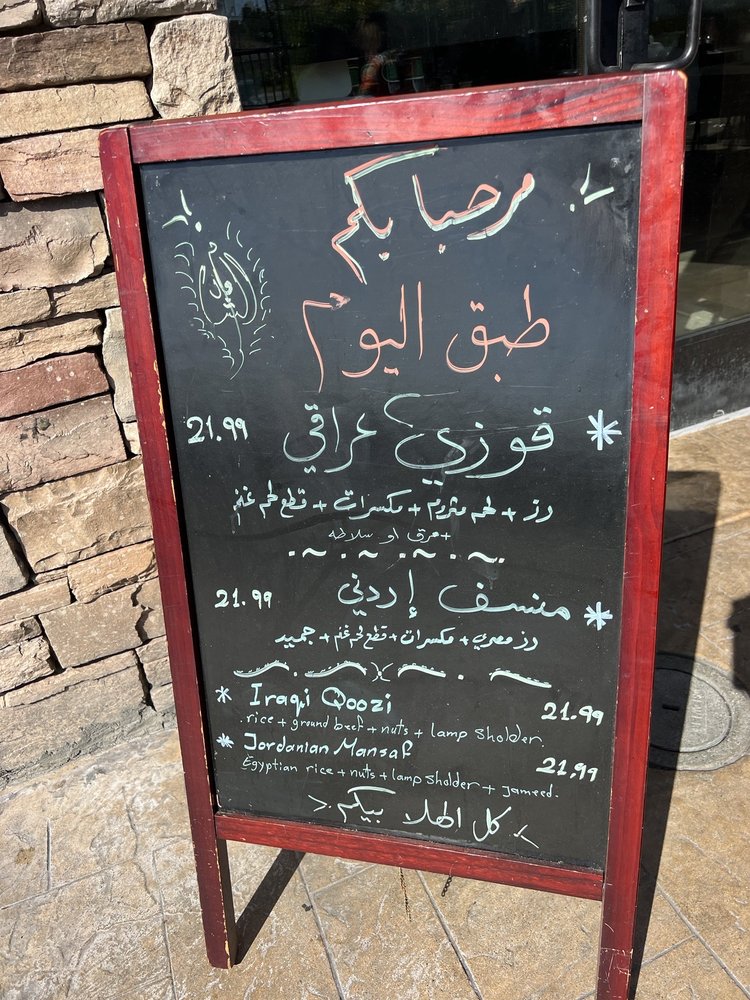 مرحبا بكم
طبق اليوم
* قوزي عراقي 21.99
رز + لحم مثروم + مكسرات + قطع لحم غنم
+ مرق او سلاطه
* منسف إردني 21.99
رز مصري + مكسرات + قطع لحم غنم + جميد
* Iraqi Qoozi 21.99
rice + ground beef + nuts + lamp sholder.
* Jordanian Mansaf 21.99
Egyptian rice + nuts + lamp sholder + jameed.
> كل الهلا بيكم <